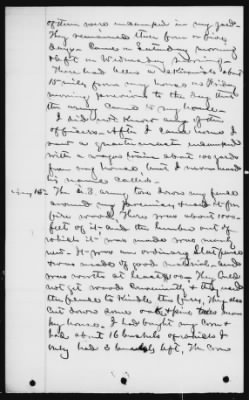 of them were encamped in my yard.
They remained there four or five
days. Came on Saturday morning
& left on Wednesday morning.
There had been a skirmish about
15 miles from my house on Friday
evening previous to the day that
the army came to my house.
I did not know any of the
officers. After I came home I
saw a quartermaster encamped
with a wagon train about 100 yards
from my house, but I never heard
his name called.
The U.S. army tore down my fence
around my premises & used it for
fire wood. There was about 1000
feet of it and the lumber out of
which it was made was nearly
new. It was an ordinary fence
was made of good material, and
was worth at least $100. They could
not get wood conveniently & they used
the fence to kindle the fires, They also
cut down some oak & pine trees near
my house. I had bought my corn &
had about 16 bushels of which I
only had 3 bushels left, The corn